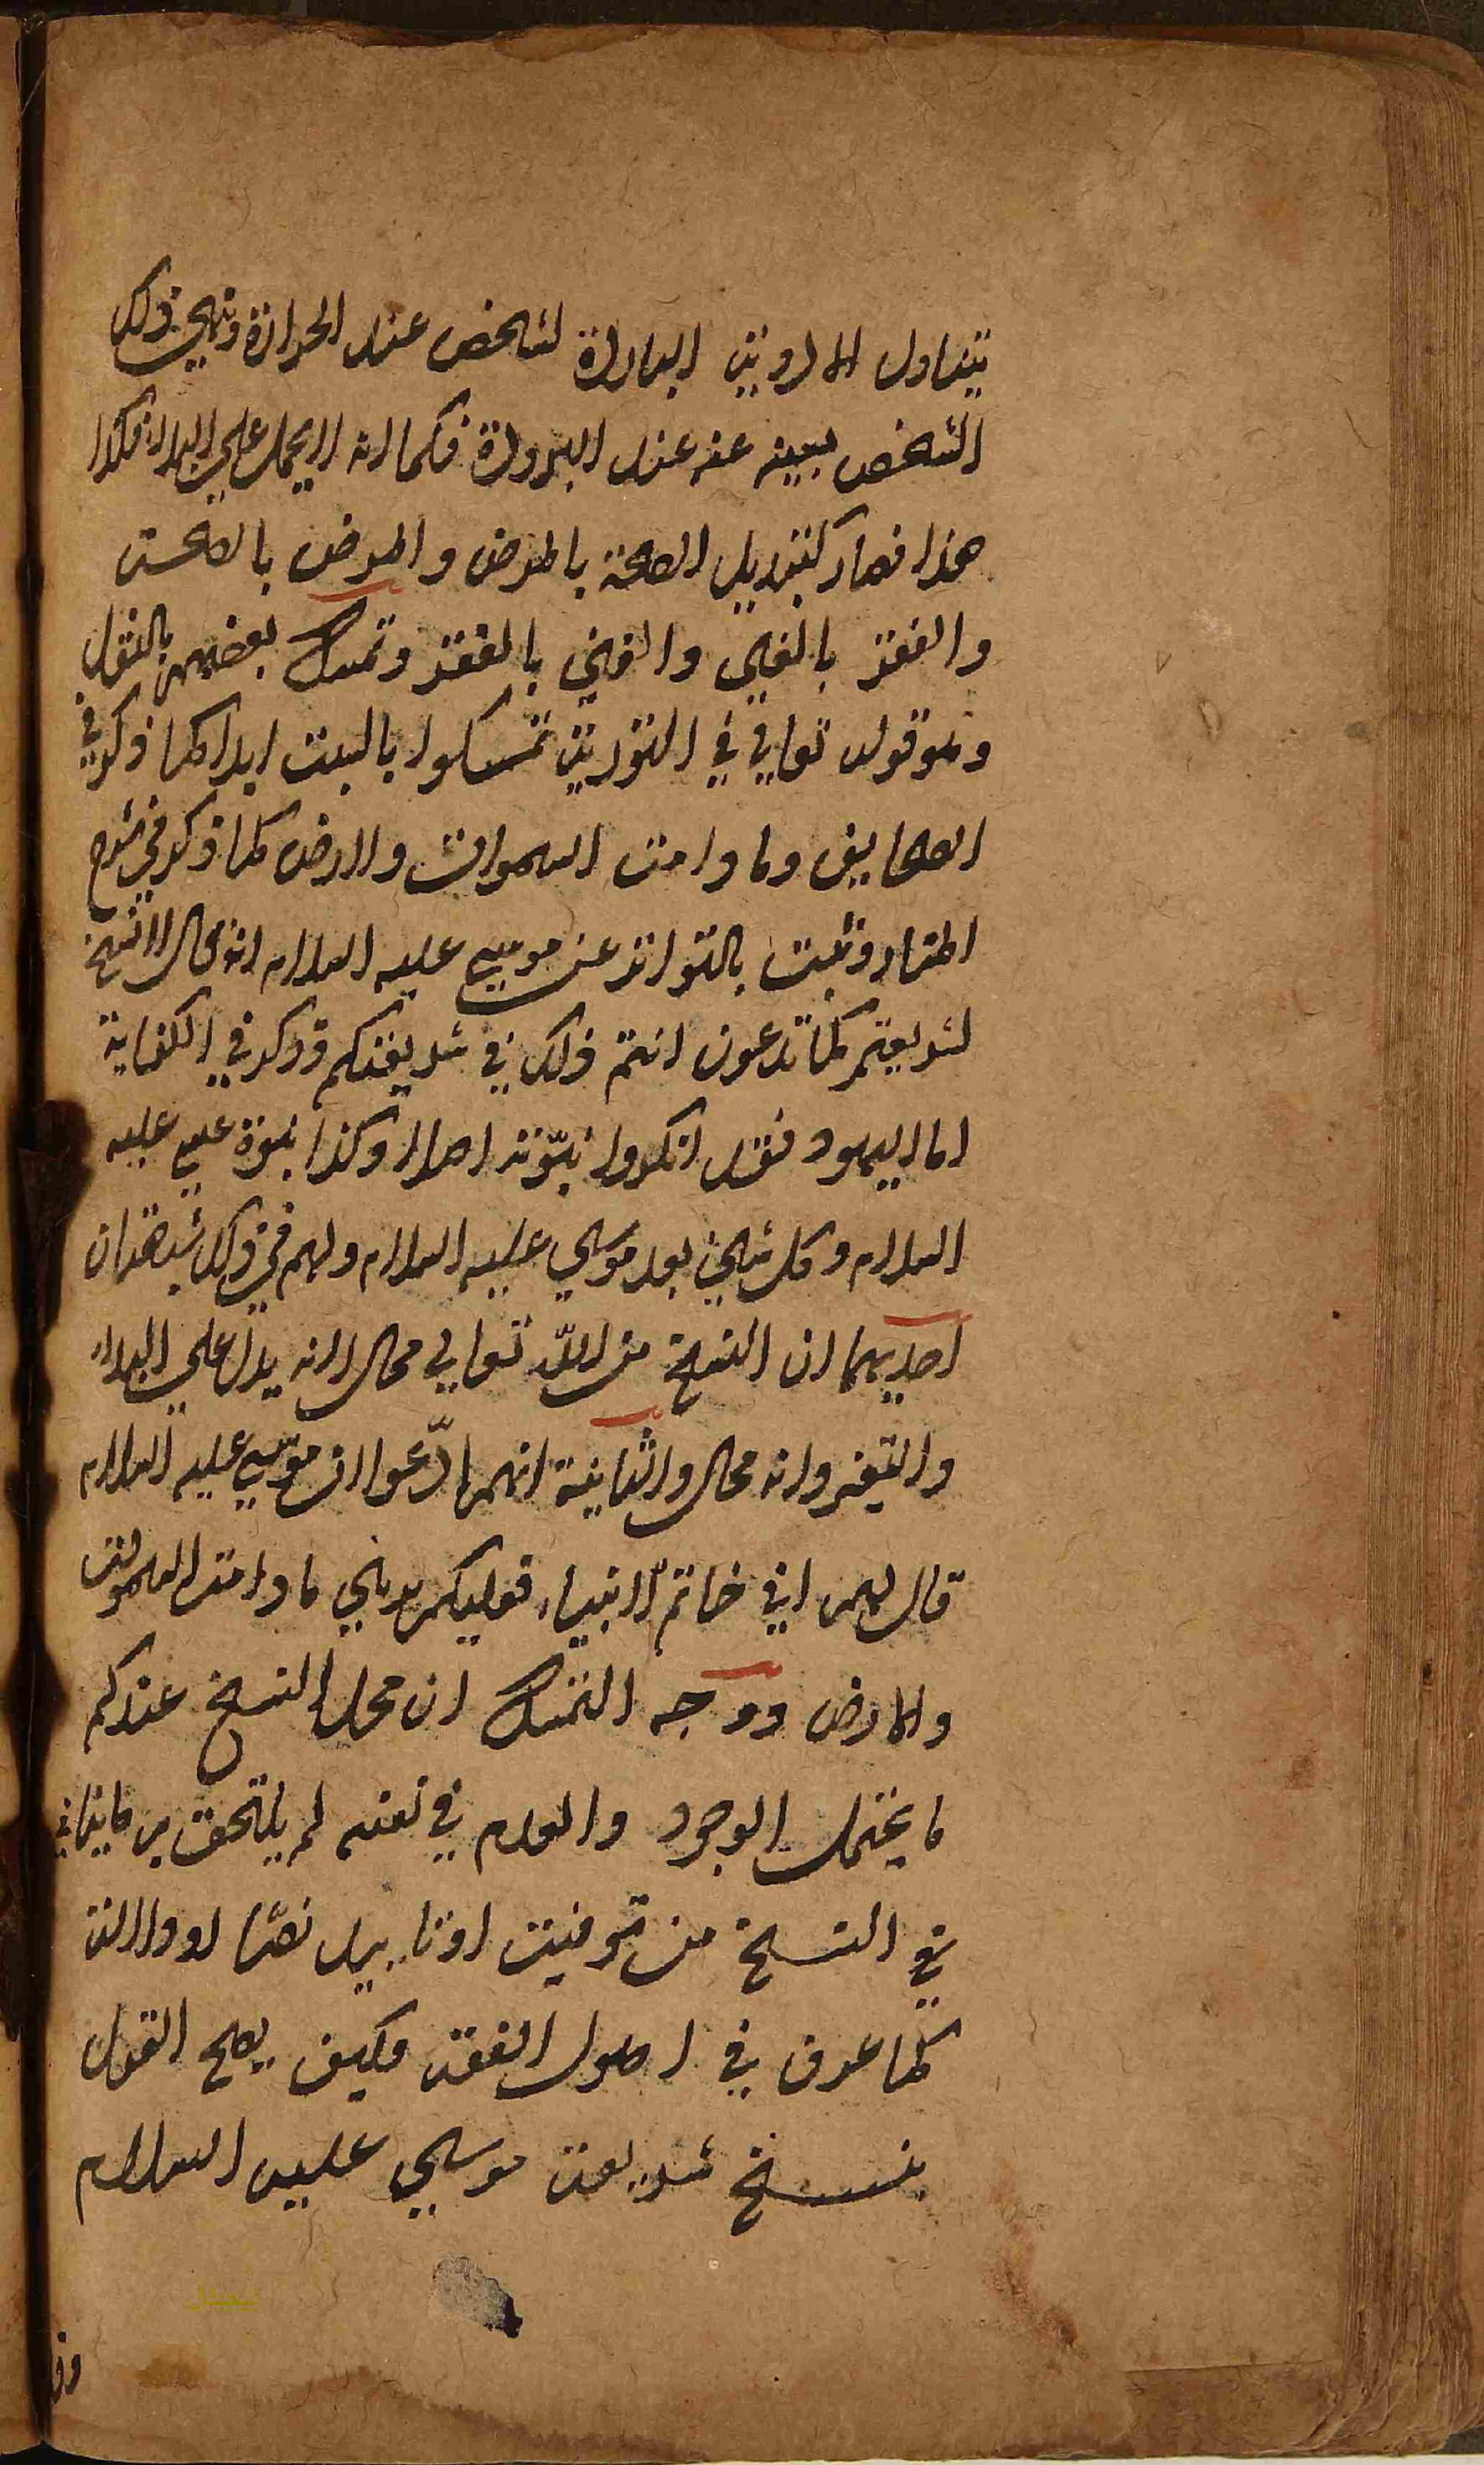 بتناول الادوية الباردة لشخص عند الحرارة ونهي ذلك
الشخص بعينه عنه عند البرودة فكما انه لا يحمل علي البداء فكذا
هذا فصار كتبديل الصحة بالمرض والمرض بالصحة
والفقر بالغني والغني بالفقر وتمسك بعضهم بالنقل
وهو قوله تعالي في التورية تمسكوا بالسبت ابدا كما ذكر في
الصحايف وما دامت السموات والارض كما ذكر في شرح
المنار وثبت بالتواتر عن موسي عليه السلام انه قال لا نسخ
لشريعتي كما تدعون انتم ذلك في شريعتكم وذكر في الكفاية
اما اليهود فقد انكروا نبوّته اصلا وكذا نبوة عيسي عليه
السلام وكل شيء بعد موسي عليه السلام ولهم في ذلك شبهتان
احديهما ان النسخ من اللّه تعالي محال لانه يدل علي البداء
والتغير وانه محال والثانية انهم ادّعوا ان موسي عليه السلام
قال لهم اني خاتم الانبياء فعليكم بديني ما دامت السموات
والارض ووجه التمسك ان محل النسخ عندكم
ما يحتمل الوجود والعدم في نفسه لم يلتحق به ما ينافي
في النسخ من توقيت او تابيد نصّا او دلالة
كما عرف في اصول الفقه فكيف يصح القول
بنسخ شريعة موسي عليه السلام